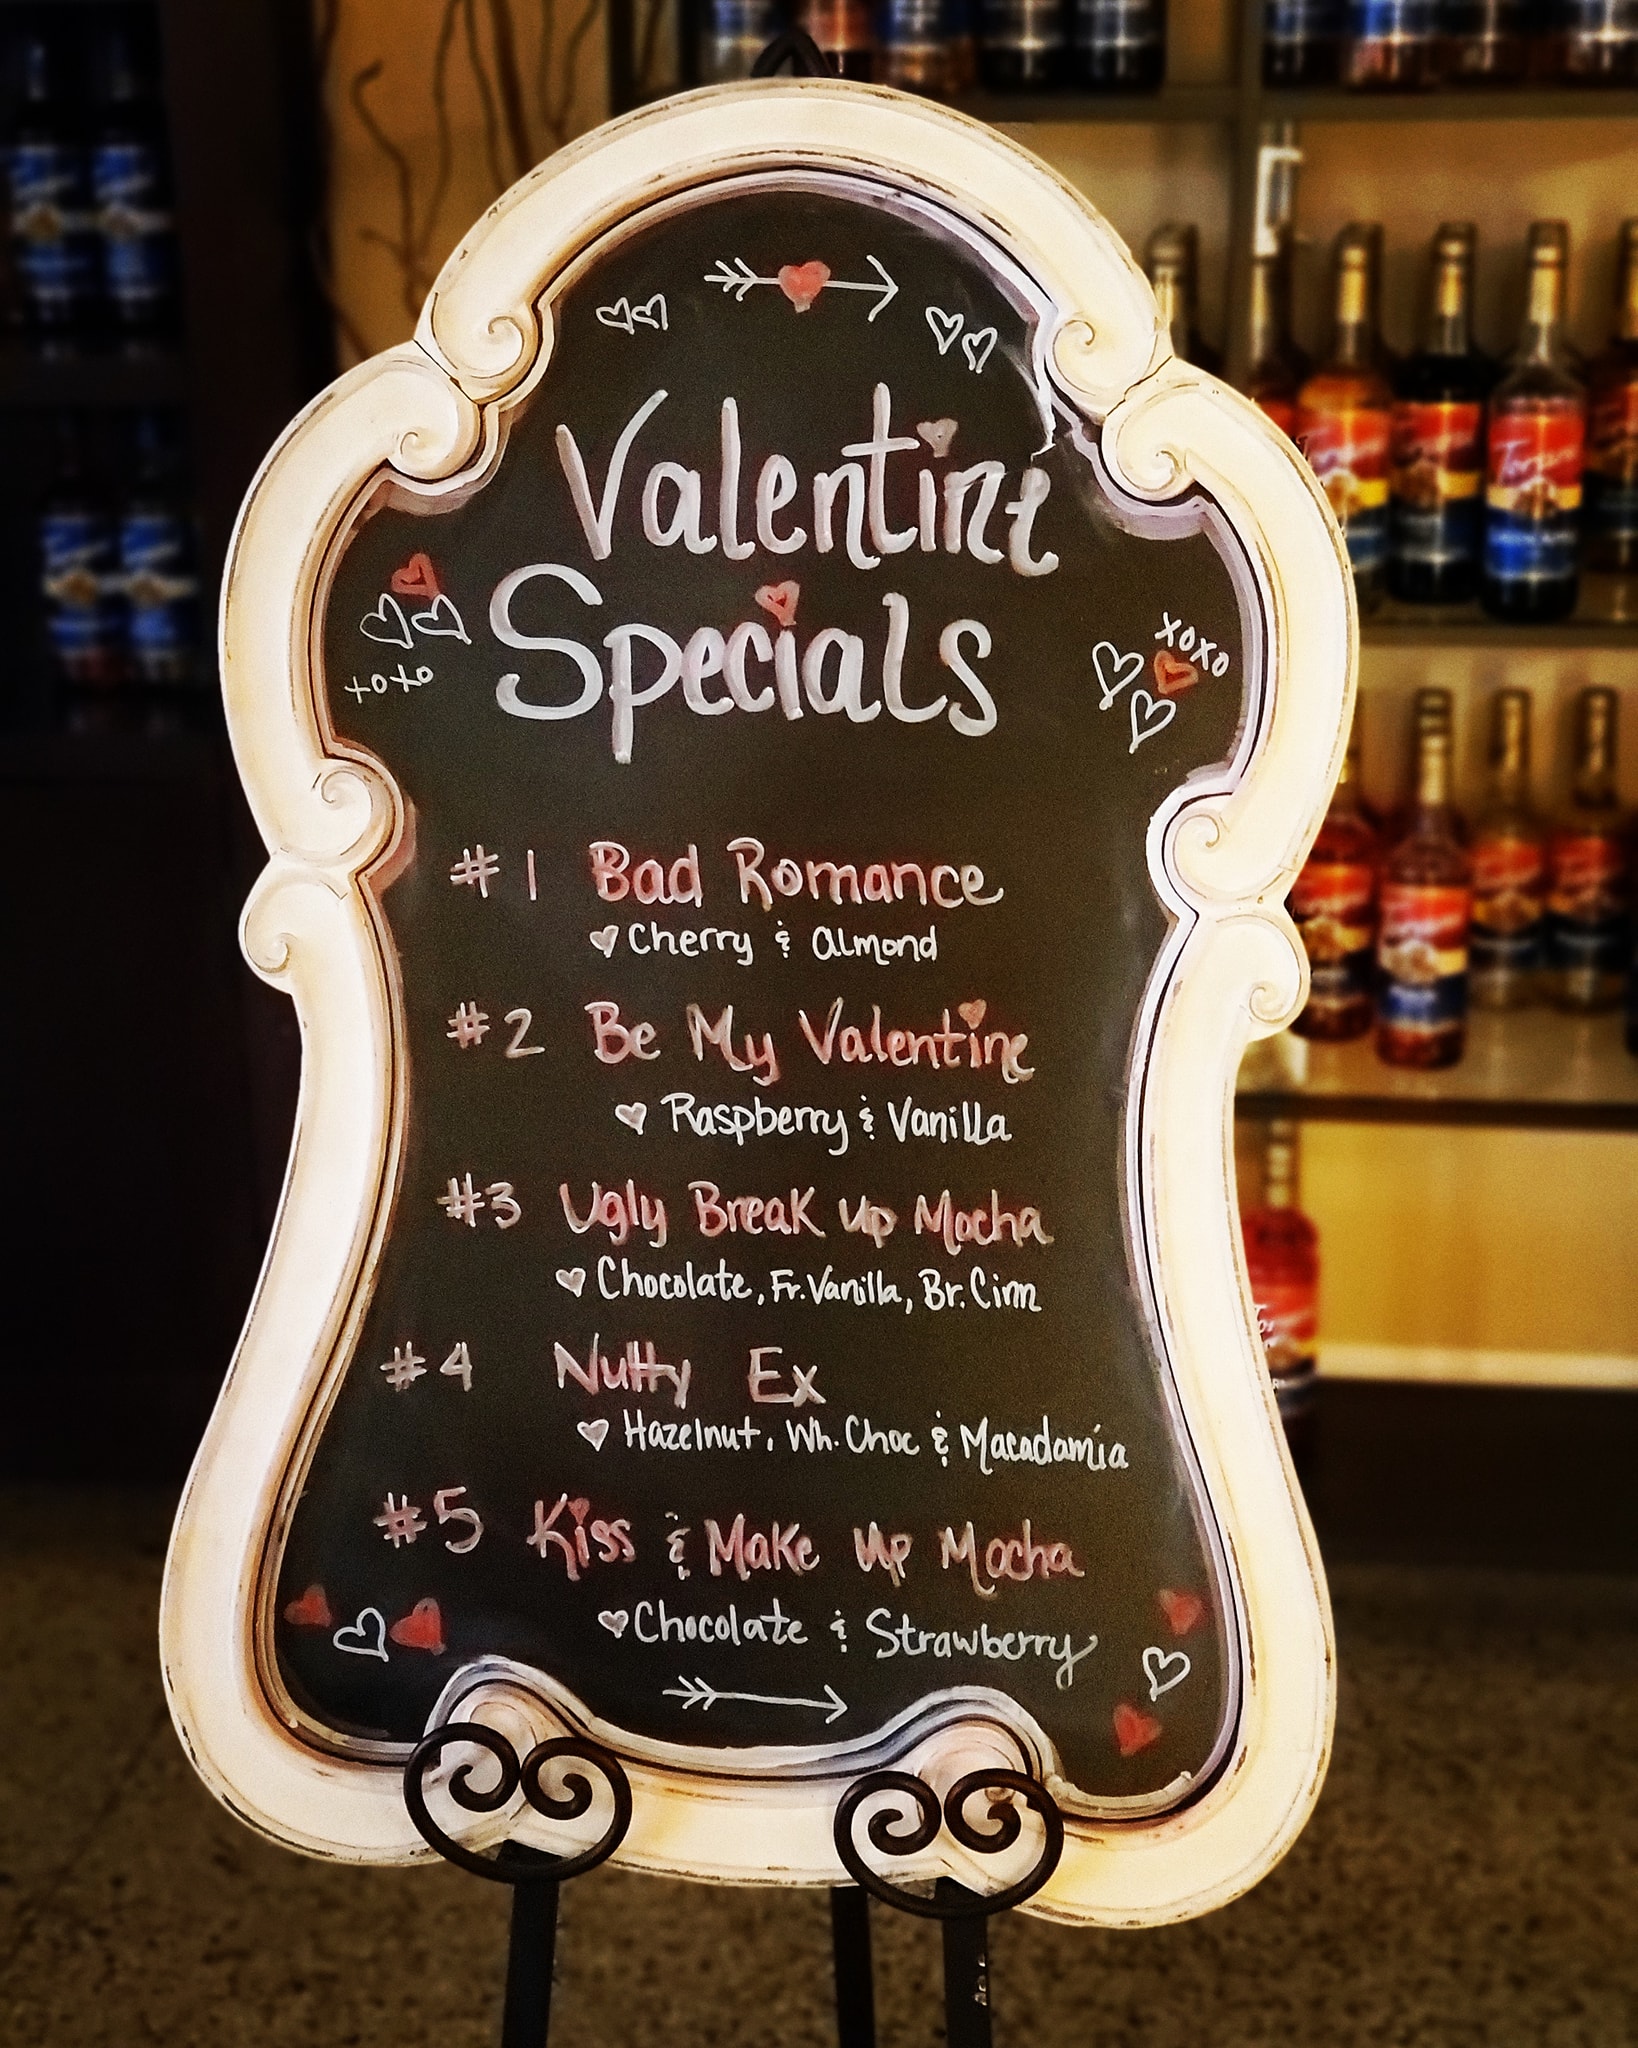 Valentine
Specials
xoxo
xoxo
#1 Bad Romance
Cherry & Almond
#2 Be My Valentine
Raspberry & Vanilla
#3 Ugly Break Up Mocha
Chocolate, Fr. Vanilla, Br. Cinn
#4 Nutty Ex
Hazelnut, Wh. Choc & Macadamia
#5 Kiss & Make Up Mocha
Chocolate & Strawberry
Torani